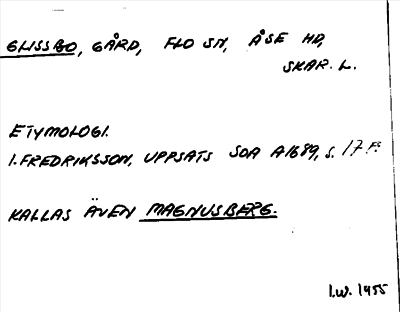 GLISSBO, GÅRD, FLO SN, ÅSE HD,
SKAR. L.
ETYMOLOGI.
I. FREDRIKSSON, UPPSATS SOA A1689, S. 17 FF.
KALLAS ÄVEN MAGNUSBERG.
I.W. 1955